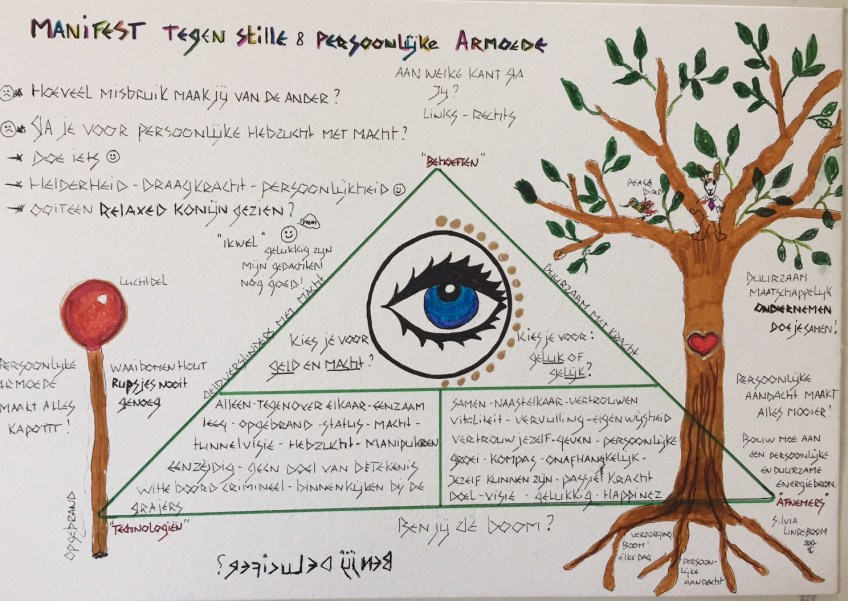 MANIFEST TEGEN STILLE & PERSOONLIJKE ARMOEDE
HOEVEEL MISBRUIK MAAK JIJ VAN DE ANDER?
GA JE VOOR PERSOONLIJKE HEBZUCHT MET MACHT?
DOE IETS
HELDERHEID - DRAAGKRACHT - PERSOONLIJKHEID
OOIT EEN RELAXED KONIJN GEZIEN?
AAN WELKE KANT STA
JIJ?
LINKS - RECHTS
"BEHOEFTEN"
"IK WEL"
GELUKKIG ZIJN
MIJN GEDACHTEN
NOG GOED!
GELDVERSLINDERS MET MACHT
DUURZAAM MET KRACHT
KIES JE VOOR
GELD EN MACHT?
KIES JE VOOR:
GELUK OF
GELIJK?
ALLEEN - TEGENOVER ELKAAR - EENZAAM
LEEG - OPGEBRAND - STATUS - MACHT -
TUNNELVISIE - HEBZUCHT - MANIPULEREN
EENZIJDIG - GEEN DOEL VAN BETEKENIS
WITTE BOORD CRIMINEEL - BINNENKIJKEN BIJ DE
GRAAIERS
SAMEN - NAAST ELKAAR - VERTROUWEN
VITALITEIT - VERVULLING - EIGENWIJSHEID
VERTROUW JEZELF - GEVEN - PERSOONLIJKE
GROEI - KOMPAS - ONAFHANKELIJK -
JEZELF KUNNEN ZIJN - PASSIE! KRACHT
DOEL - VISIE - GELUKKIG - HAPPINEZ
"TECHNOLOGIEËN"
"AFNEMERS"
BEN JIJ DE BOOM?
BEN JIJ DE LUCIFER?
LUCHTBEL
PERSOONLIJKE
ARMOEDE
MAAKT ALLES
KAPOTTT!
WAAIBOMENHOUT
RUPSJES NOOIT
GENOEG
OPGEBRAND
PEACE
BIRD
DUURZAAM
MAATSCHAPPELIJK
ONDERNEMEN
DOE JE SAMEN!
PERSOONLIJKE
AANDACHT MAAKT
ALLES MOOIER!
BOUW MEE AAN
EEN PERSOONLIJKE
EN DUURZAME
ENERGIEBRON.
SILVIA
LINDEBOOM
VERZORGING
BOOM
ELKE DAG
PERSOON-
LIJKE
AANDACHT